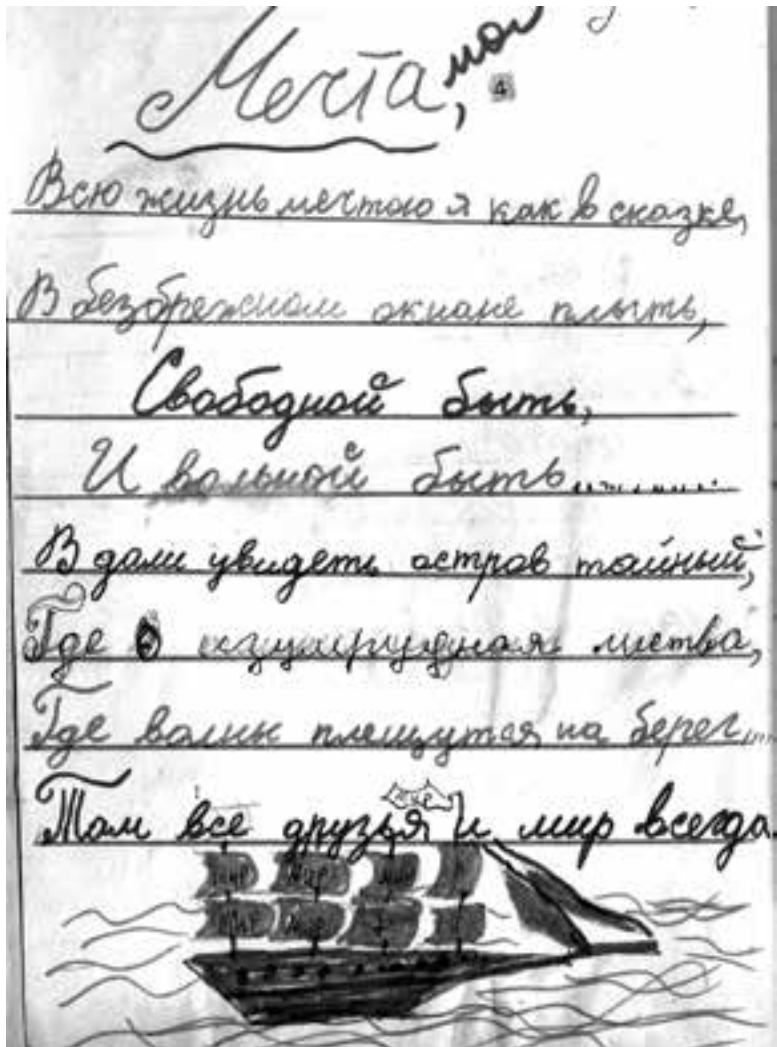 Мечта, моя
4
Всю жизнь мечтаю я как в сказке,
В безбрежном окиане плыть,
Свободной быть,
И вольной быть..........
В дали увидеть остров тайный,
Где изумрудная листва,
Где волны плещутся на берег....
Там все друзья и мир всегда.
мир
мир мир мир
мир мир